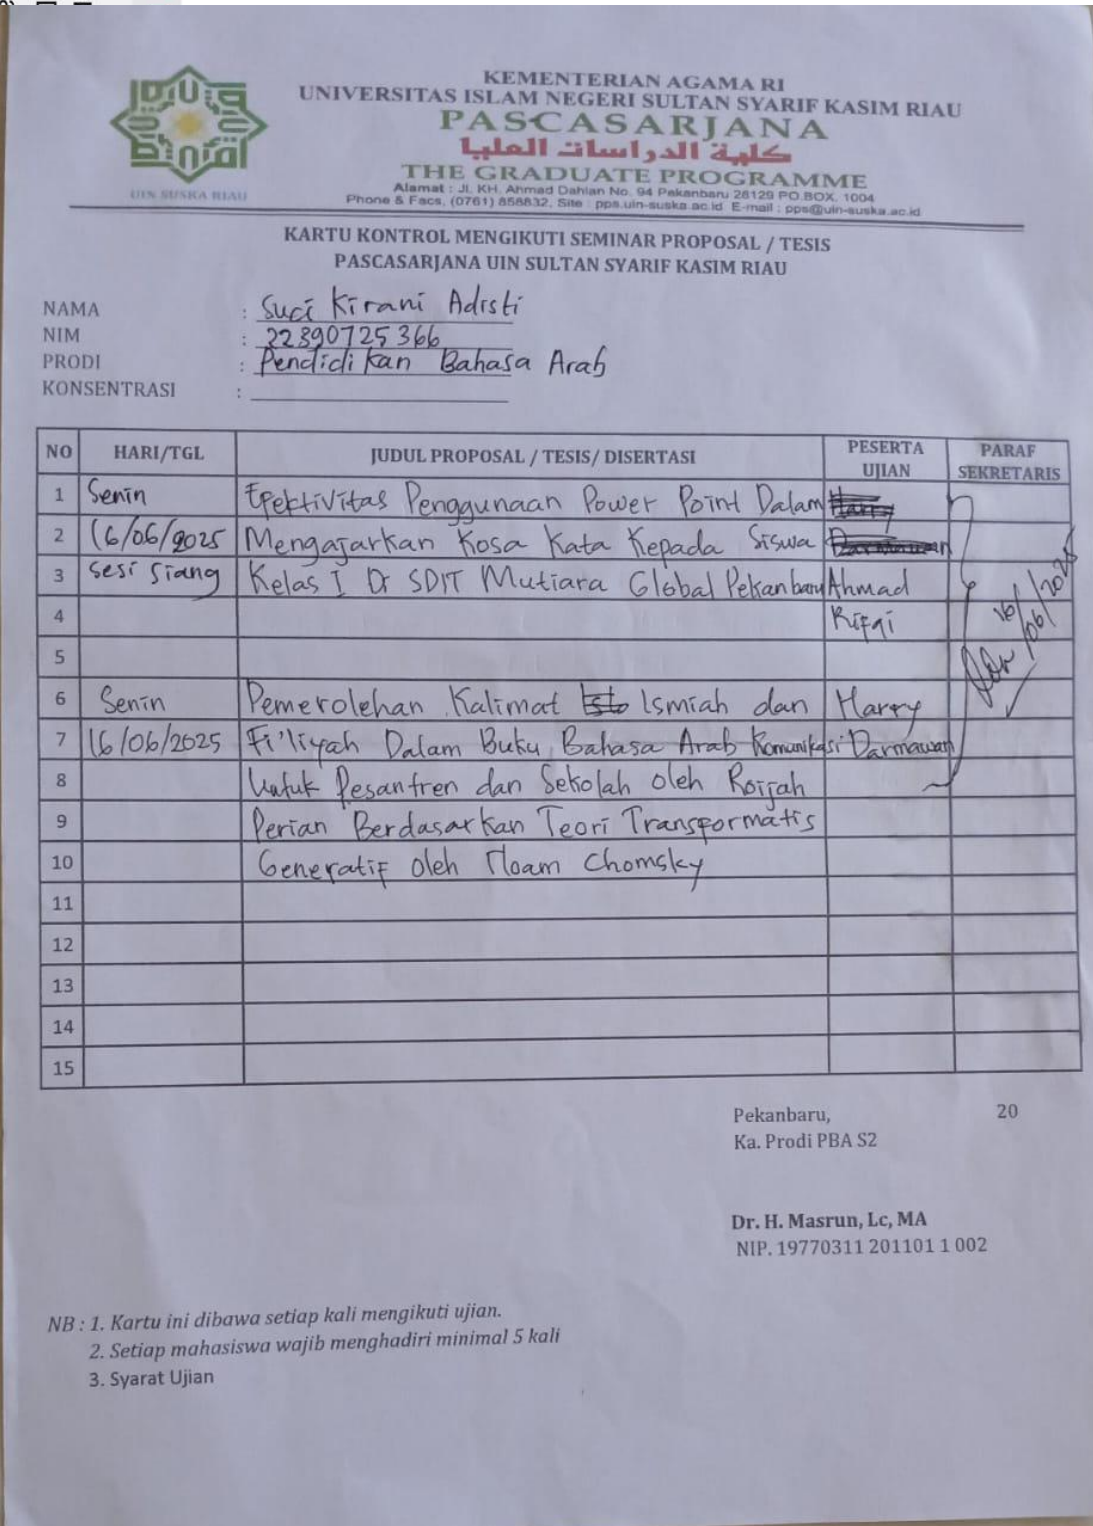 KEMENTERIAN AGAMA RI
UNIVERSITAS ISLAM NEGERI SULTAN SYARIF KASIM RIAU
PASCASARJANA
كلية الدراسات العليا
THE GRADUATE PROGRAMME
Alamat : Jl. KH. Ahmad Dahlan No. 94 Pekanbaru 28129 PO.BOX. 1004
Phone & Facs, (0761) 858832, Site : pps.uin-suska.ac.id E-mail : pps@uin-suska.ac.id
UIN SUSKA RIAU
KARTU KONTROL MENGIKUTI SEMINAR PROPOSAL / TESIS
PASCASARJANA UIN SULTAN SYARIF KASIM RIAU
NAMA : Suci Kirani Adisti
NIM : 22890725366
PRODI : Pendidikan Bahasa Arab
KONSENTRASI :
NO HARI/TGL JUDUL PROPOSAL / TESIS/ DISERTASI PESERTA UJIAN PARAF SEKRETARIS
1 Senin Efektivitas Penggunaan Power Point Dalam Harry
2 16/06/2025 Mengajarkan Kosa Kata Kepada Siswa Darmawan
3 Sesi Siang Kelas I Di SDIT Mutiara Global Pekanbaru Ahmad
4 Rifqi 16/06/2025
5
6 Senin Pemerolehan Kalimat Ismiah dan Harry
7 16/06/2025 Fi'liyah Dalam Buku Bahasa Arab Komunikasi Darmawan
8 Untuk Pesantren dan Sekolah oleh
9 Perian Berdasarkan Teori Transformatis
10 Generatif oleh Noam Chomsky
11
12
13
14
15
Pekanbaru, 20
Ka. Prodi PBA S2
Dr. H. Masrun, Lc, MA
NIP. 19770311 201101 1 002
NB : 1. Kartu ini dibawa setiap kali mengikuti ujian.
2. Setiap mahasiswa wajib menghadiri minimal 5 kali
3. Syarat Ujian